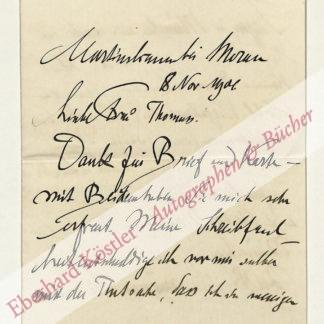 Martinsbrunn bei Meran
8 Nov. 190
Liebe Frau Thomass!
Dank für Brief und Karte –
mit Reiseknaben die mich sehr
erfreut. Meine Schreibfaul-
entschuldige ich vor mir selber
mit der Tatsache, dass ich in
Eberhard Köstler - Autographen & Bücher